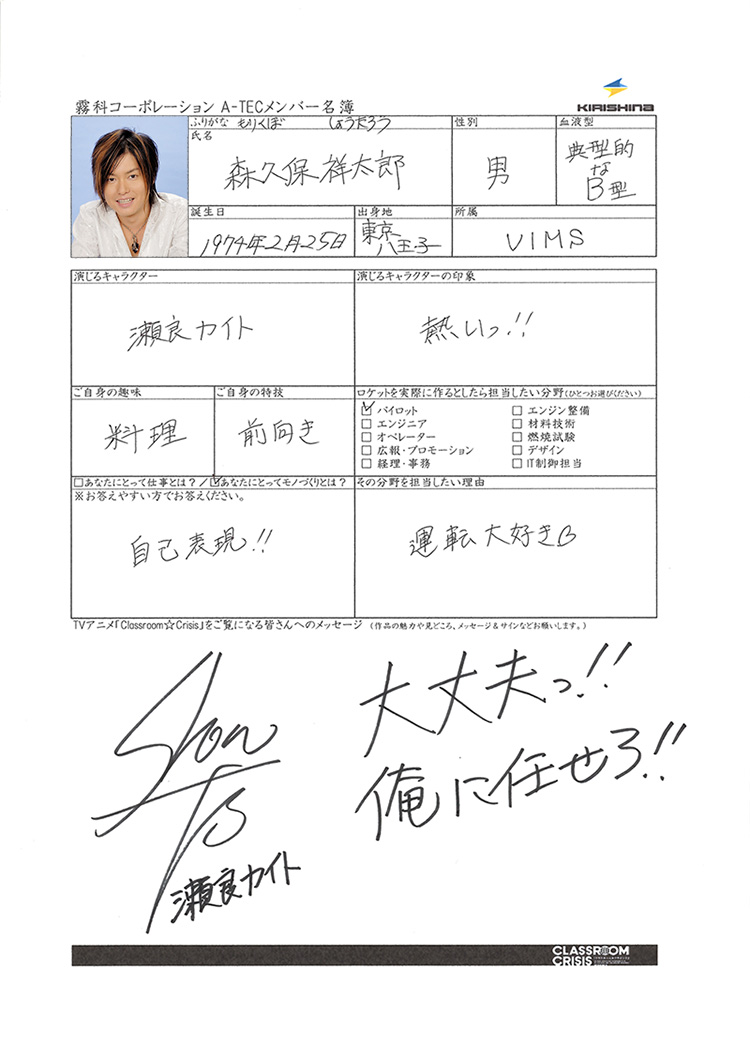 霧科コーポレーション A-TECメンバー名簿
KIRISHINA
ふりがな もりくぼ しょうたろう
氏名
森久保祥太郎
性別
男
血液型
典型的
な
B型
誕生日
1974年2月25日
出身地
東京
八王子
所属
VIMS
演じるキャラクター
瀬良カイト
演じるキャラクターの印象
熱いっ!!
ご自身の趣味
料理
ご自身の特技
前向き
ロケットを実際に作るとしたら担当したい分野(ひとつお選びください)
パイロット
エンジニア
オペレーター
広報・プロモーション
経理・事務
エンジン整備
材料技術
燃焼試験
デザイン
IT制御担当
□あなたにとって仕事とは?/☑あなたにとってモノづくりとは?
※お答えやすい方でお答えください。
自己表現!!
その分野を担当したい理由
運転大好き
TVアニメ「Classroom☆Crisis」をご覧になる皆さんへのメッセージ (作品の魅力や見どころ、メッセージ&サインなどお願いします。)
大丈夫っ!!
俺に任せろ!!
瀬良カイト
CLASSROOM
CRISIS